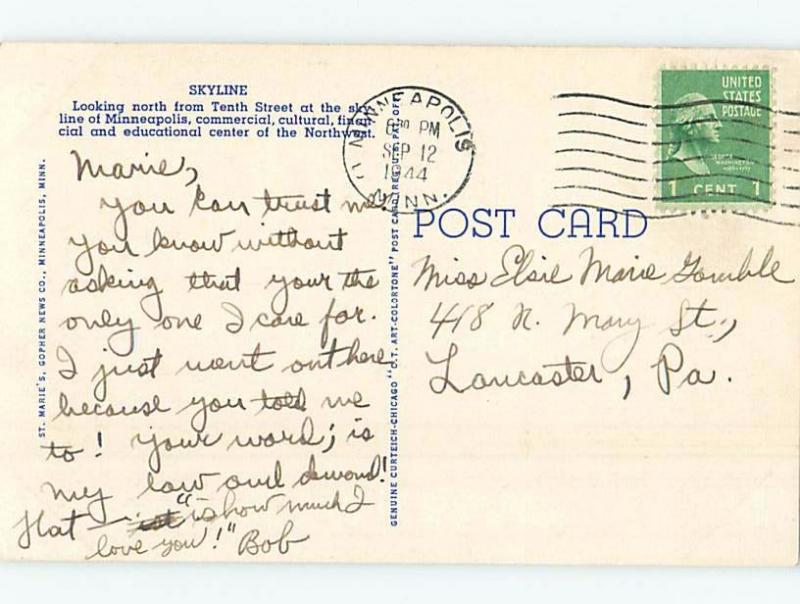 SKYLINE
Looking north from Tenth Street at the sky
line of Minneapolis, commercial, cultural, finan-
cial and educational center of the Northwest.
Marie,
You can trust me
you know without
asking that your the
only one I care for.
I just went out here
because you told me
to! Your word; is
my law and demand!
"is how much I
love you!" Bob
ST. MARIE'S, GOPHER NEWS CO., MINNEAPOLIS, MINN.
GENUINE CURTEICH-CHICAGO "C.T. ART-COLORTONE" POST CARD (REG. U.S. PAT. OFF.)
MINNEAPOLIS
630 PM
SEP 12
1944
MINN.
UNITED
STATES
POSTAGE
GEORGE
WASHINGTON
1 CENT 1
POST CARD
Miss Elsie Marie Gamble
418 N. Mary St.,
Lancaster, Pa.